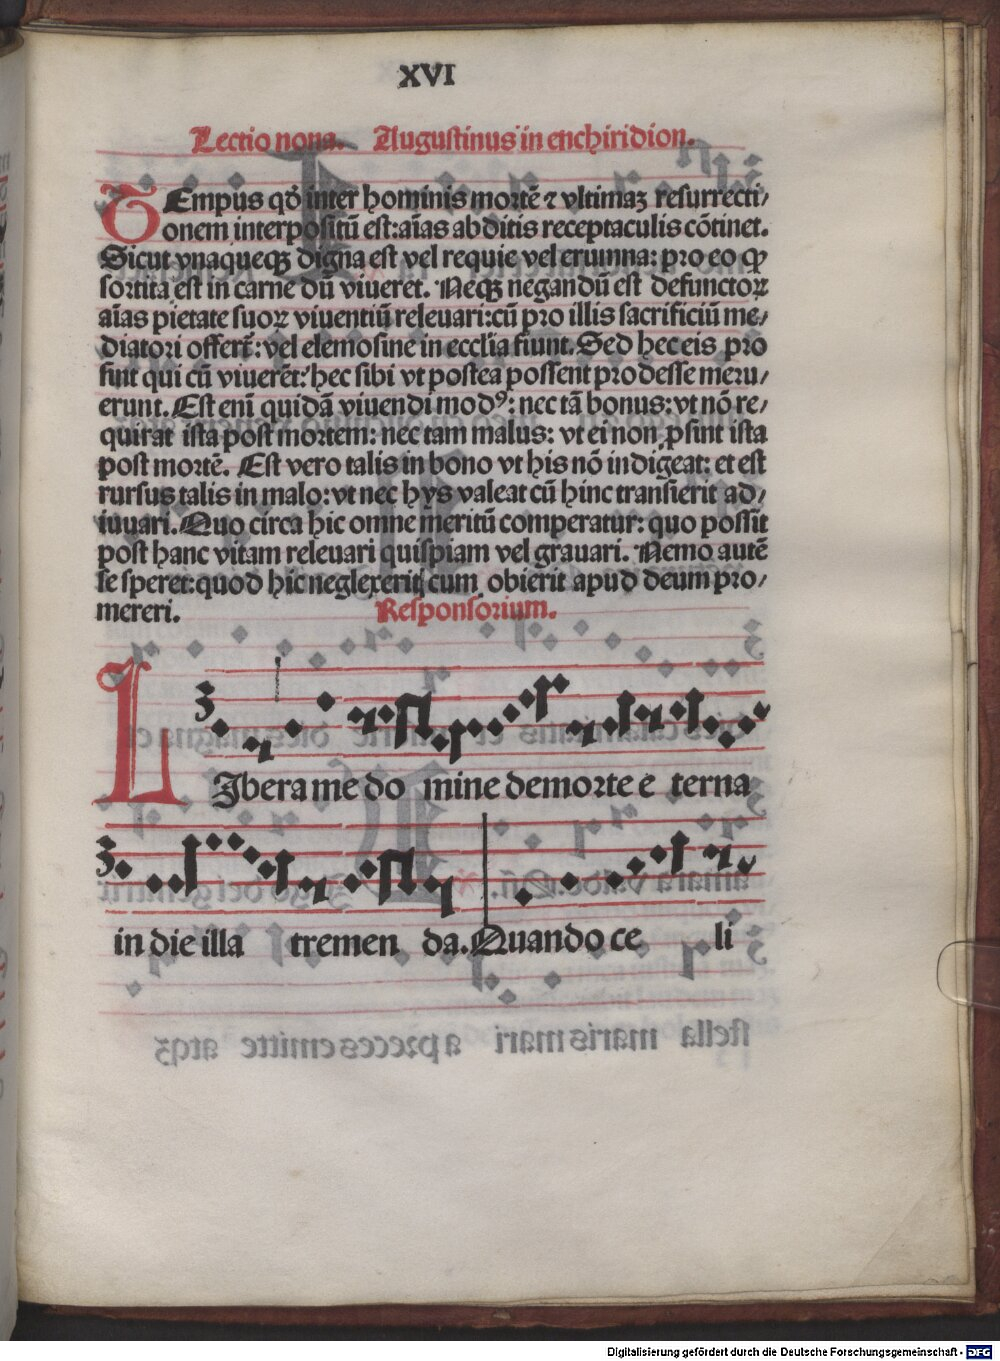 XVI
Lectio nona. Augustinus in enchiridion.
TEmpus qd̄ inter hominis mortē ⁊ vltimaꝫ resurrecti/
onem interpositū est: aīas abditis receptaculis cōtinet.
Sicut vnaqueqꝫ digna est vel requie vel erumna: pro eo ꝙ
sortita est in carne dū viueret. Neqꝫ negandū est defunctoꝝ
aīas pietate suoꝝ viuentiū releuari: cū pro illis sacrificiū me/
diatori offert̄: vel elemosine in ecclīa fiunt. Sed hec eis pro
sint qui cū viuerēt: hec sibi vt postea possent prodesse meru/
erunt. Est enī quidā viuendi modꝰ: nec tā bonus: vt nō re/
quirat ista post mortem: nec tam malus: vt ei non ꝓsint ista
post mortē. Est vero talis in bono vt his nō indigeat: et est
rursus talis in malo: vt nec hys valeat cū hinc transierit ad/
iuuari. Quo circa hic omne meritū comperatur: quo possit
post hanc vitam releuari quispiam vel grauari. Nemo autē
se speret: quod hic neglexerit cum obierit apud deum pro/
mereri. Responsorium.
LIbera me do mine de morte e terna
in die illa tremen da. Quando ce li
Digitalisierung gefördert durch die Deutsche Forschungsgemeinschaft - DFG